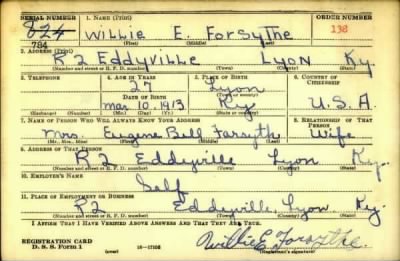 SERIAL NUMBER 1. NAME (Print) ORDER NUMBER
824 Willie E. Forsythe 138
784 (First) (Middle) (Last)
2. ADDRESS (Print)
R 2 Eddyville Lyon Ky.
(Number and street or R. F. D. number) (Town) (County) (State)
3. TELEPHONE 4. AGE IN YEARS 5. PLACE OF BIRTH 6. COUNTRY OF CITIZENSHIP
27 Lyon
DATE OF BIRTH (Town or county)
Mar. 10, 1913 Ky U.S.A.
(Exchange) (Number) (Mo.) (Day) (Yr.) (State or country)
7. NAME OF PERSON WHO WILL ALWAYS KNOW YOUR ADDRESS 8. RELATIONSHIP OF THAT PERSON
Mrs. Eugene Bell Forsyth Wife
(Mr., Mrs., Miss) (First) (Middle) (Last)
9. ADDRESS OF THAT PERSON
R 2 Eddyville Lyon Ky.
(Number and street or R. F. D. number) (Town) (County) (State)
10. EMPLOYER'S NAME
Self
11. PLACE OF EMPLOYMENT OR BUSINESS
R2 Eddyville, Lyon Ky.
(Number and street or R. F. D. number) (Town) (County) (State)
I AFFIRM THAT I HAVE VERIFIED ABOVE ANSWERS AND THAT THEY ARE TRUE.
REGISTRATION CARD
D. S. S. Form 1 (over) Willie E Forsythe.
(Registrant's signature)